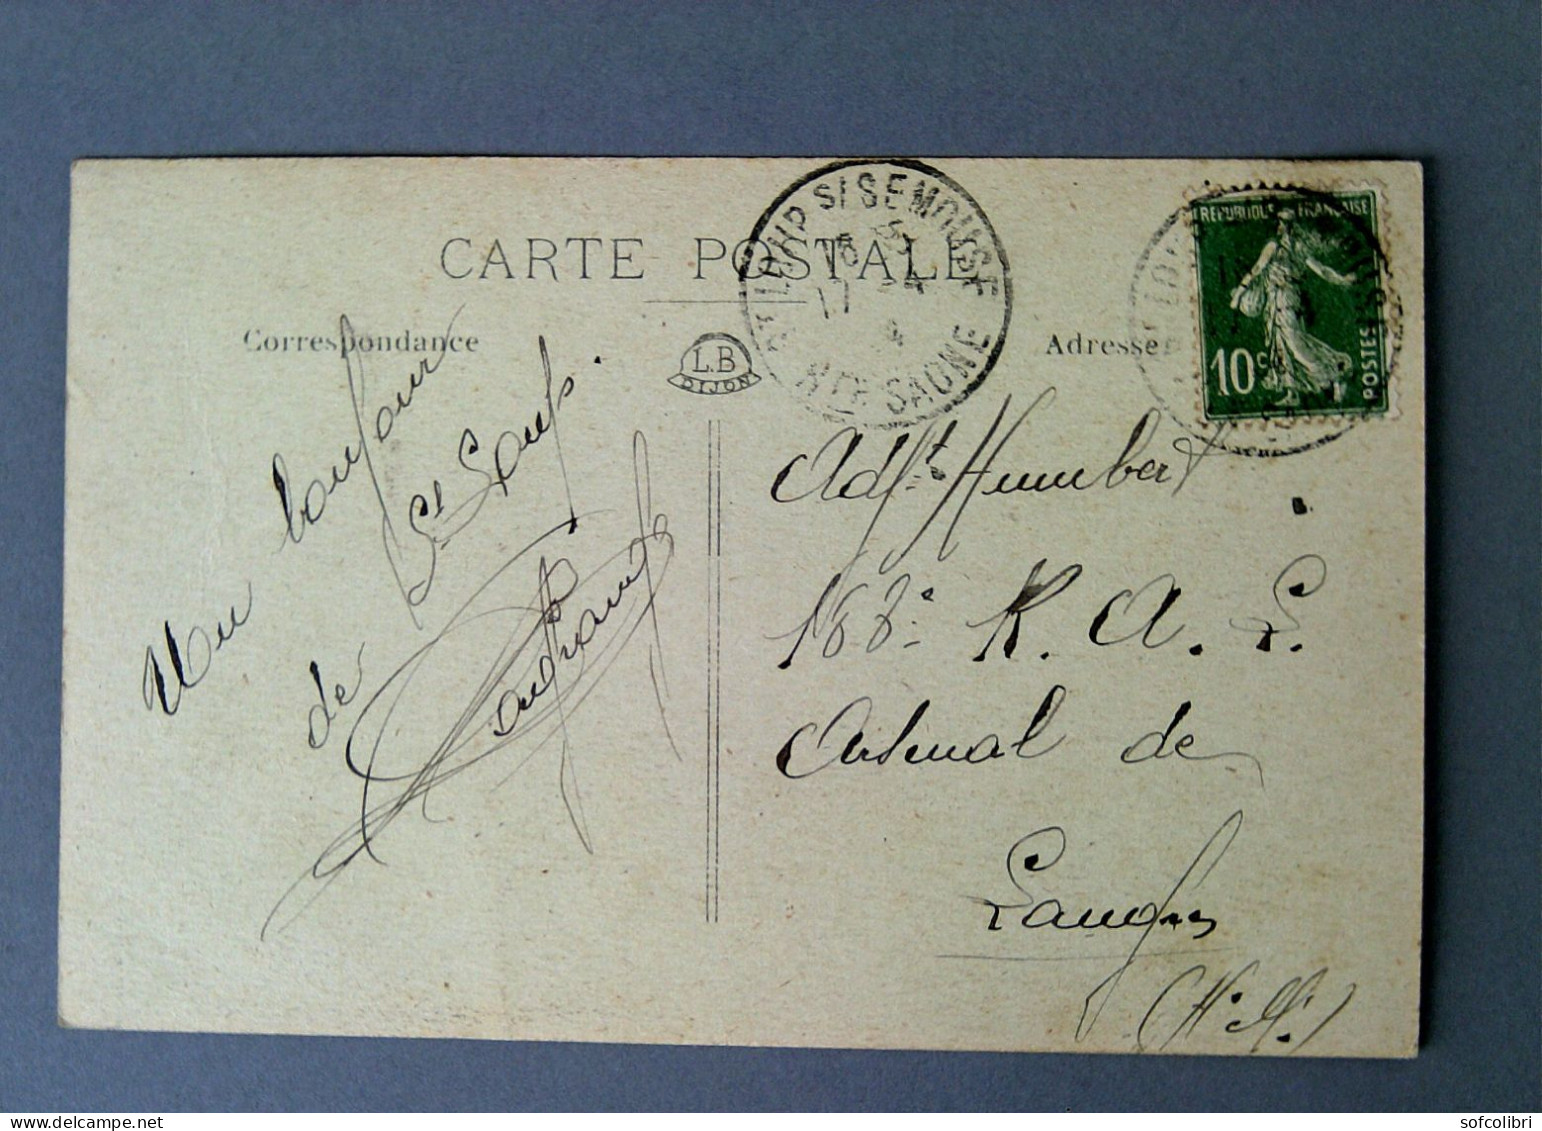 CARTE POSTALE
Correspondance
Adresse
L.B
DIJON
ST LOUP S/SEMOUSE
16 35
17 -4
HTE SAONE
REPUBLIQUE FRANÇAISE
10c
POSTES
Mon bonjour
de St Loup.
Adjt Humbert
168e R. A. L.
Arsenal de
Langres
(H. M.)
sofcolibri